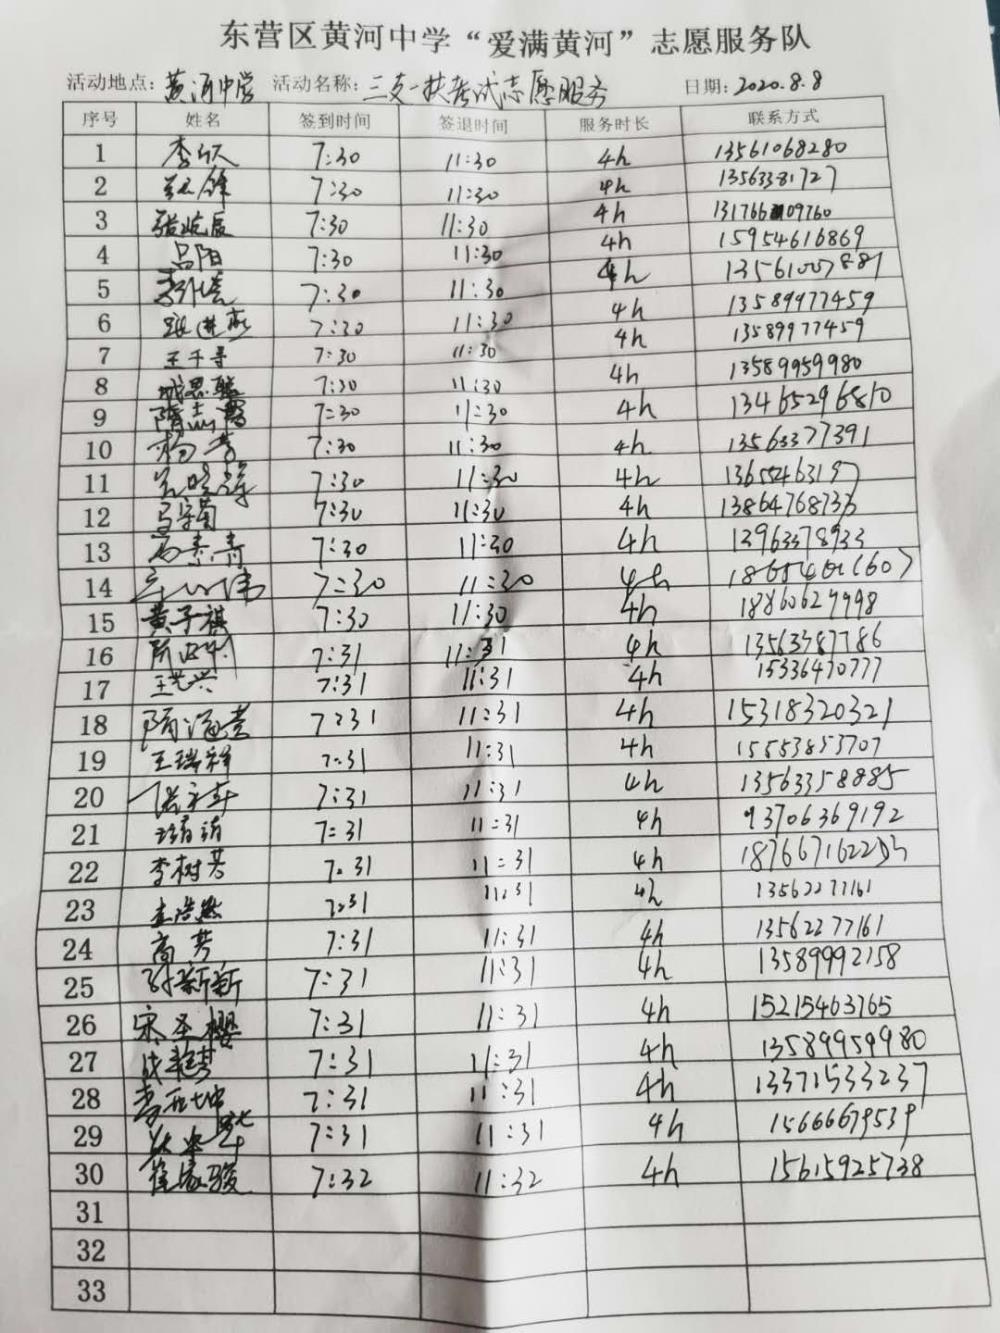 东营区黄河中学“爱满黄河”志愿服务队
活动地点：黄河中学 活动名称：三支一扶考试志愿服务 日期：2020.8.8
序号 姓名 签到时间 签退时间 服务时长 联系方式
1 李欣 7:30 11:30 4h 13561068280
2 7:30 11:30 4h 13563381727
3 张皓辰 7:30 11:30 4h 131766 09760
4 吕阳 7:30 11:30 4h 15954616869
5 7:30 11:30 4h 13561007881
6 7:30 11:30 4h 13589977459
7 王千寻 7:30 11:30 4h 13589977459
8 7:30 11:30 4h 13589959980
9 隋志霞 7:30 11:30 4h 13465296810
10 杨芳 7:30 11:30 4h 13563377391
11 7:30 11:30 4h 13655463197
12 马宇菊 7:30 11:30 4h 13864768733
13 7:30 11:30 4h 13963378933
14 7:30 11:30 4h
15 黄子祺 7:30 11:30 4h 18860629998
16 7:31 11:31 4h 13563387786
17 王艺兴 7:31 11:31 4h 15336470777
18 隋海莹 7:31 11:31 4h 15318320321
19 王瑞祥 7:31 11:31 4h 15553853707
20 7:31 11:31 4h 13563358885
21 7:31 11:31 4h 13706369192
22 李树芳 7:31 11:31 4h
23 7:31 11:31 4h 13562277161
24 高芳 7:31 11:31 4h 13562277161
25 孙新新 7:31 11:31 4h 13589992158
26 宋圣樱 7:31 11:31 4h 15215463765
27 7:31 11:31 4h 13589959980
28 7:31 11:31 4h 13371533237
29 7:31 11:31 4h 15666679539
30 崔家骏 7:32 11:32 4h 15615925738
31
32
33